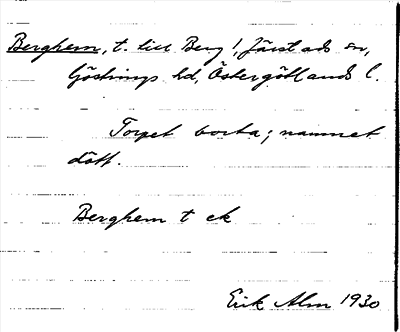 Berghem, t. till Berg 1, Järstads sn,
Göstrings hd, Östergötlands l.
Torpet borta; namnet
dött.
Berghem t ek
Erik Alm 1930